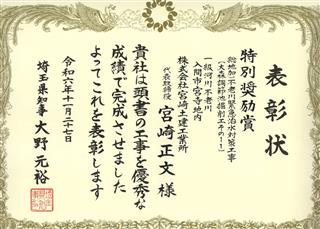 表彰状
特別奨励賞
総地加)不老川緊急治水対策工事
(大森調節池掘削工その11)
一級河川 不老川
入間市 宮寺地内
株式会社宮崎土建工業所
代表取締役
宮崎正文様
貴社は頭書の工事を優秀な
成績で完成させました
よってこれを表彰します
令和六年十一月二十七日
埼玉県知事 大野元裕